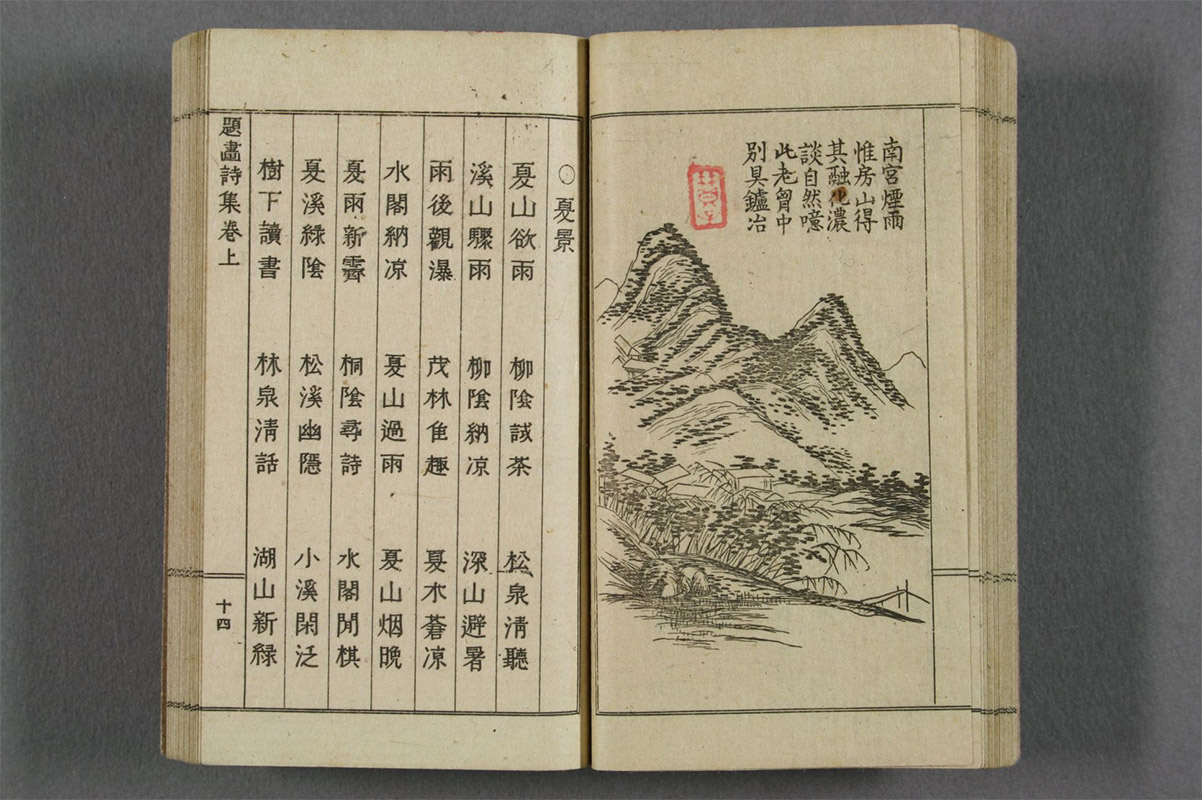 南宮煙雨
惟房山得
其融化濃
談自然噫
此老胷中
別具鑪冶
○夏景
夏山欲雨　柳陰試茶　松泉淸聽
溪山驟雨　柳陰納凉　深山避暑
雨後觀瀑　茂林佳趣　夏木蒼凉
水閣納凉　夏山過雨　夏山烟晩
夏雨新霽　桐陰尋詩　水閣閒棋
夏溪綠陰　松溪幽隱　小溪閑泛
樹下讀書　林泉淸話　湖山新綠
題畵詩集卷上　十四